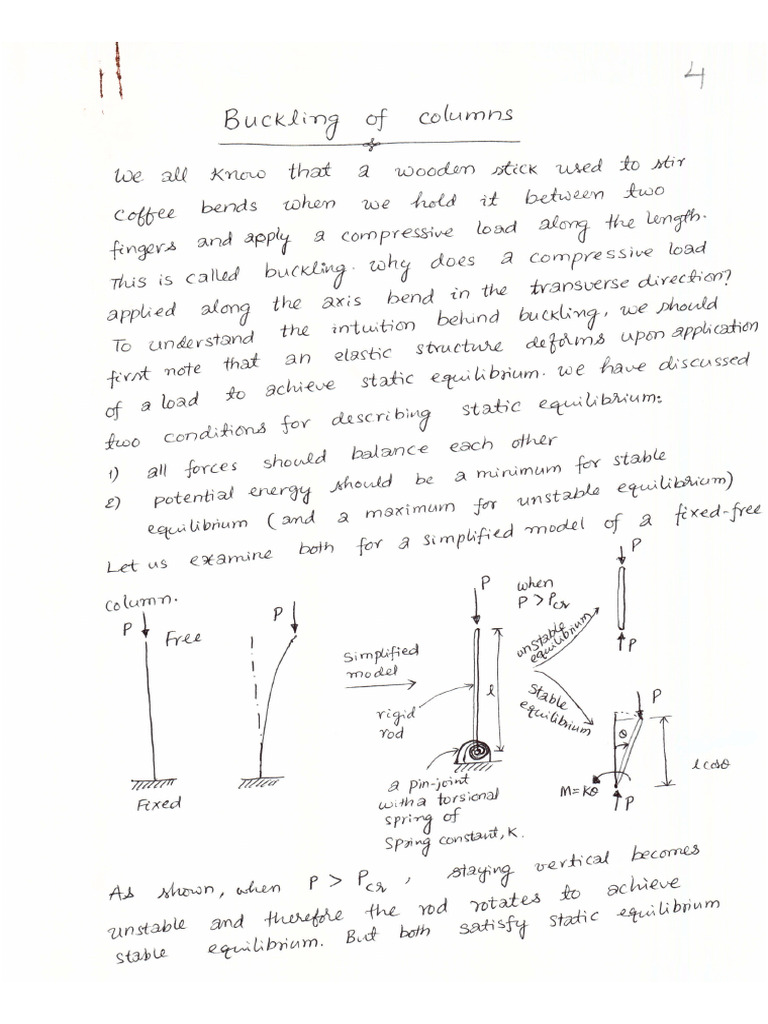 4
Buckling of columns
We all know that a wooden stick used to stir
coffee bends when we hold it between two
fingers and apply a compressive load along the length.
This is called buckling. Why does a compressive load
applied along the axis bend in the transverse direction?
To understand the intuition behind buckling, we should
first note that an elastic structure deforms upon application
of a load to achieve static equilibrium. We have discussed
two conditions for describing static equilibrium:
1) all forces should balance each other
2) potential energy should be a minimum for stable
equilibrium (and a maximum for unstable equilibrium)
Let us examine both for a simplified model of a fixed-free
column.
P
Free
Fixed
P
Simplified
model
P
l
rigid
rod
a pin-joint
with a torsional
spring of
spring constant, K.
when
P > Pcr
unstable
equilibrium
stable
equilibrium
P
P
P
θ
l cosθ
M = Kθ
P
As shown, when P > Pcr, staying vertical becomes
unstable and therefore the rod rotates to achieve
stable equilibrium. But both satisfy static equilibrium